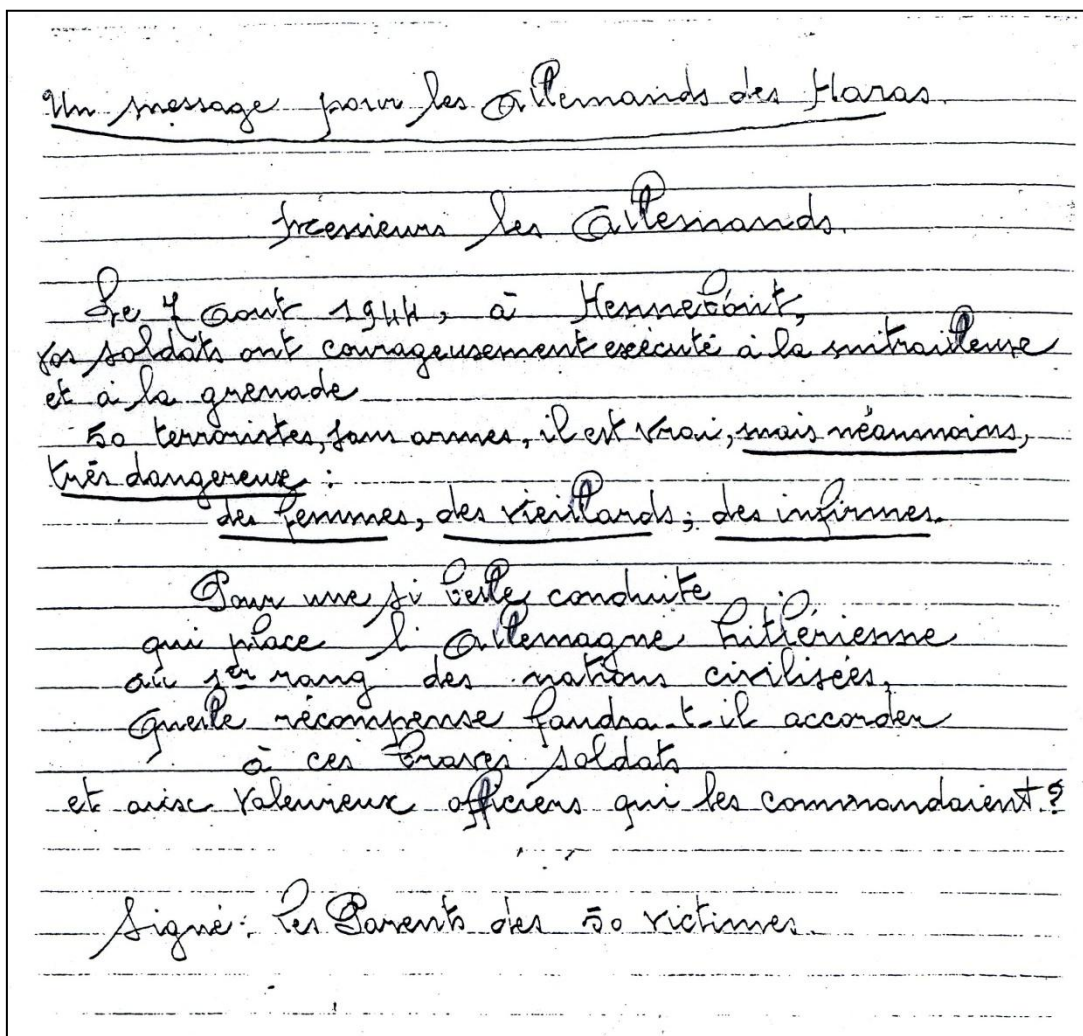 Un message pour les Allemands des Haras.
Messieurs les Allemands.
Le 7 Aout 1944, à Hennebont,
vos soldats ont courageusement exécuté à la mitrailleuse
et à la grenade
50 terroristes, sans armes, il est vrai, mais néanmoins,
très dangereux :
des femmes, des vieillards, des infirmes.
Pour une si belle conduite
qui place l'Allemagne hitlérienne
au 1er rang des nations civilisées,
Quelle récompense faudra-t-il accorder
à ces braves soldats
et aux valeureux officiers qui les commandaient ?
Signé : Les Parents des 50 victimes.